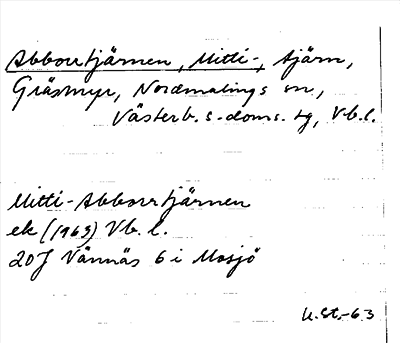 Abborrtjärnen, Mitti-, tjärn,
Gräsmyr, Nordmalings sn,
Västerb. s. doms. tg, Vb. l.
Mitti-Abborrtjärnen
ek (1963) Vb. l.
20J Vännäs 6 i Mosjö
U. St. -63